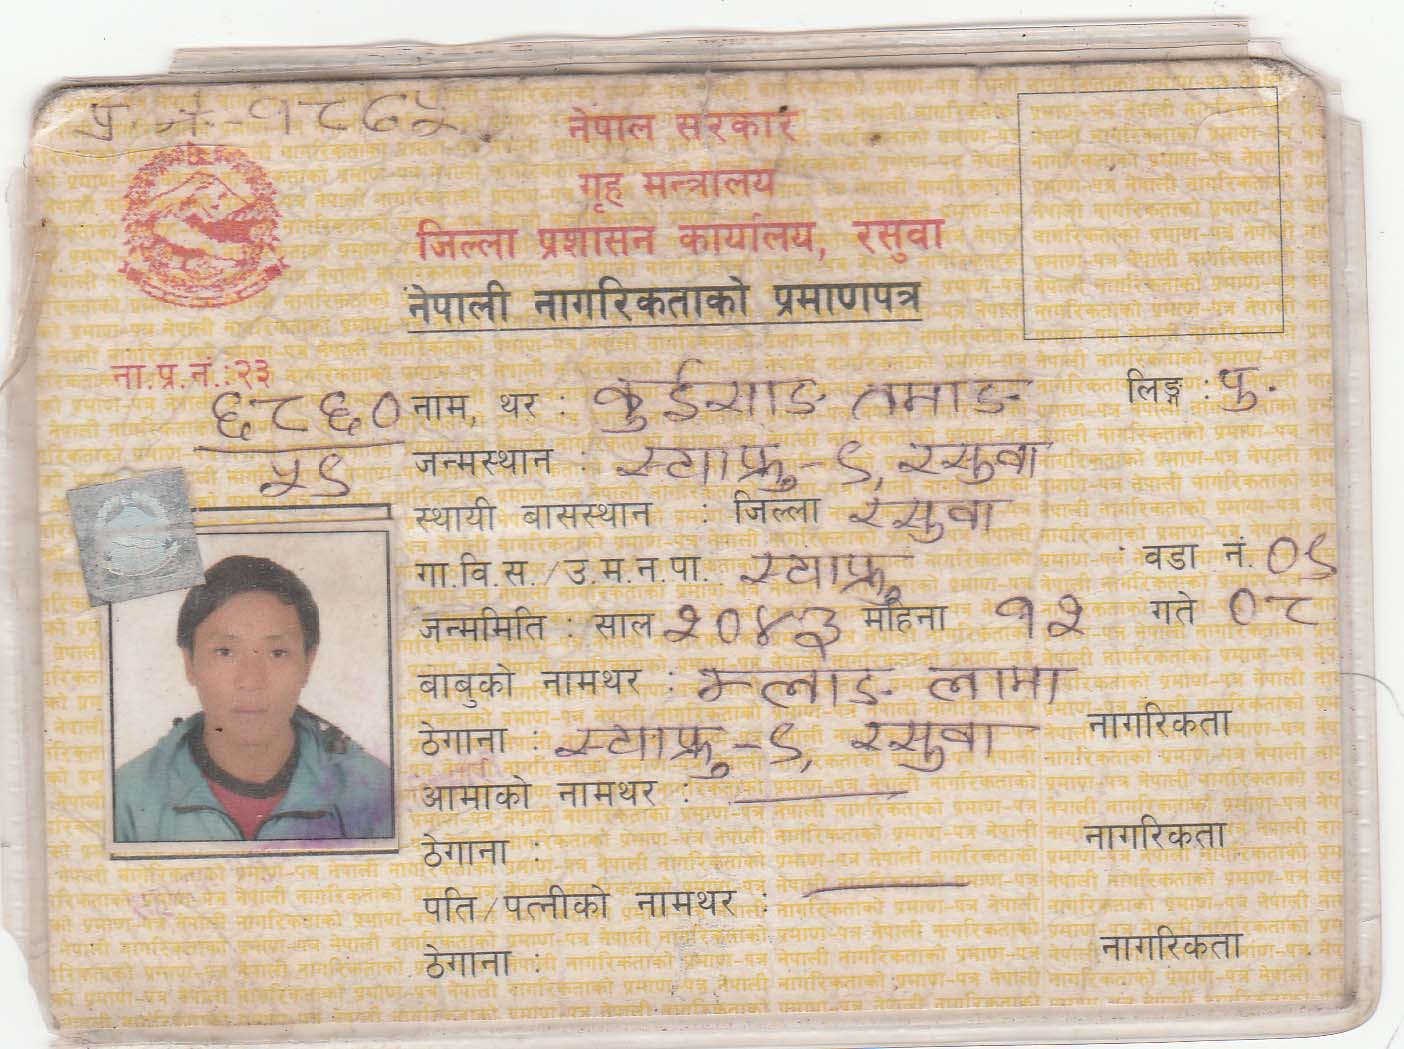 प्र.नं.-१८७५
नेपाल सरकार
गृह मन्त्रालय
जिल्ला प्रशासन कार्यालय, रसुवा
नेपाली नागरिकताको प्रमाणपत्र
ना.प्र.नं.:२३
६८६०
५९
नाम, थर : कुईसाङ तमाङ लिङ्ग : पु.
जन्मस्थान : स्याफ्रु-९, रसुवा
स्थायी बासस्थान : जिल्ला रसुवा
गा.वि.स./उ.म.न.पा. स्याफ्रु : वडा नं. ०९
जन्ममिति : साल २०४३ महिना १२ गते ०८
बाबुको नामथर : लामा
ठेगाना : स्याफ्रु-९, रसुवा नागरिकता
आमाको नामथर :
ठेगाना : नागरिकता
पति/पत्नीको नामथर :
ठेगाना : नागरिकता